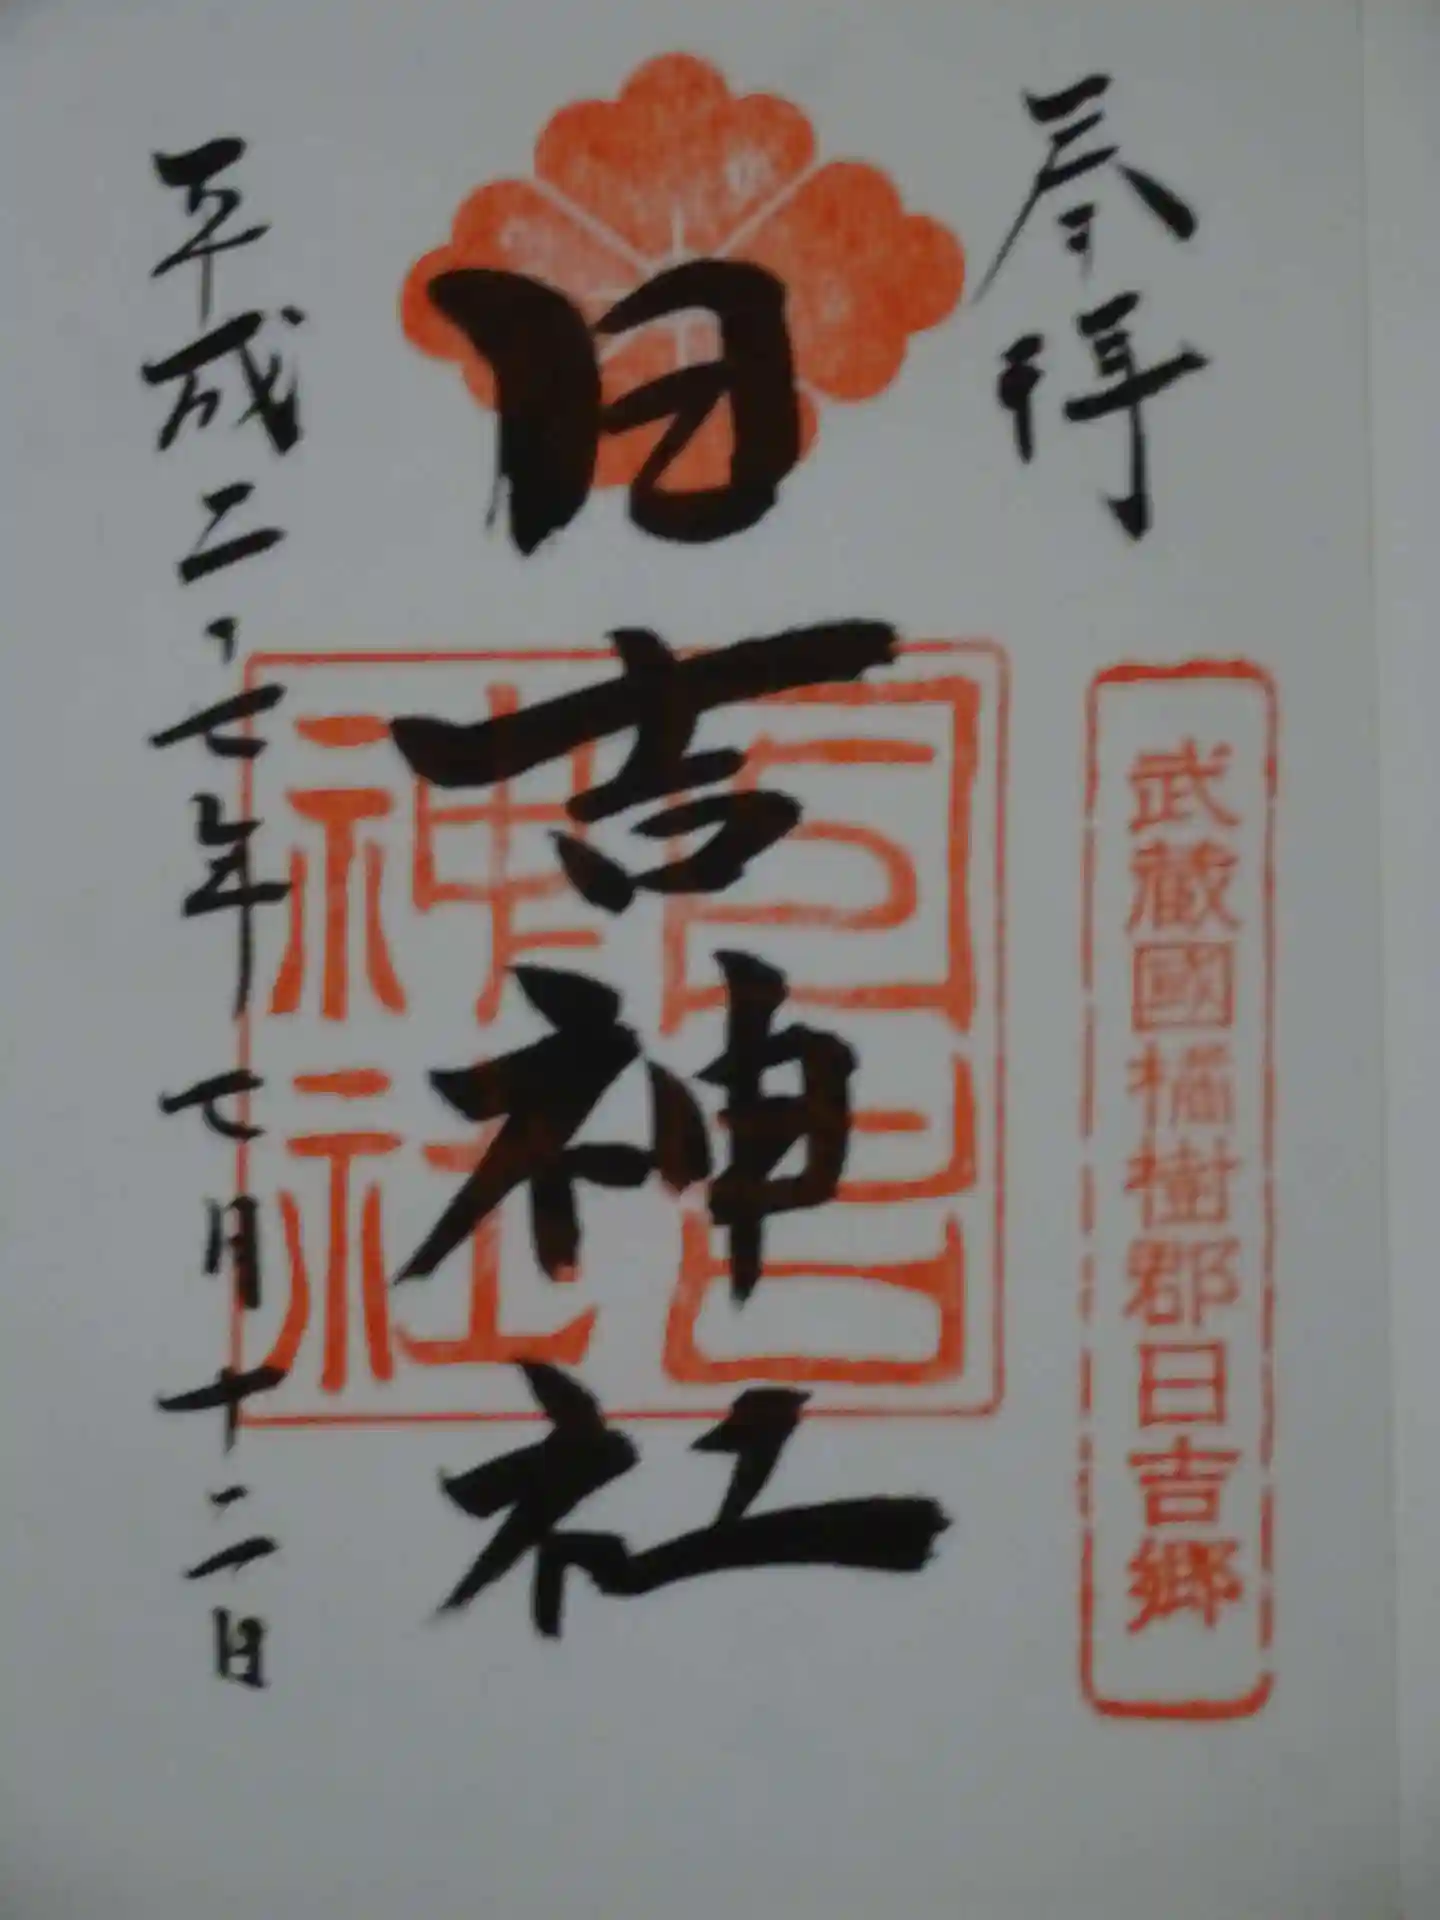 参拝
武蔵國橘樹郡日吉郷
日吉神社
日吉
神社
平成二十七年七月十二日